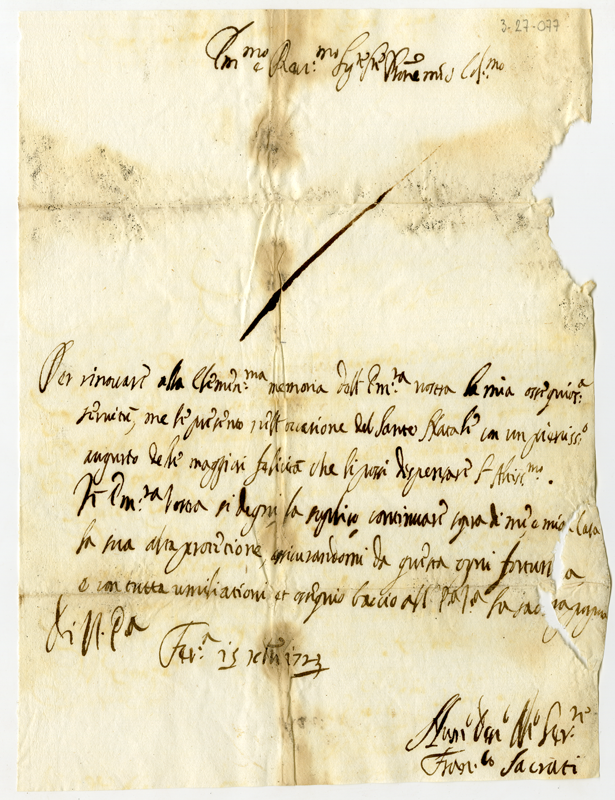 3-27-077
Em.mo e Rev.mo Sig.re Sig.re Prone mio Col.mo
Per rinovare alla Clemen.ma memoria dell' Em.za vostra la mia ossequios.a
servitù, me le presento nell' occasione del Santo Natale con un pieniss.o
augurio delle maggiori felicità che li possi dispensare l' Altiss.mo.
Em.za vostra si degni la supplico continuare sopra di me e mia Casa
la sua alta protezione, assicurandomi da questa ogni fortuna
e con tutta umiliatione et ossequio baccio all' la sac porpora
Di V. Em.za
Fer.a 15 Xbre 1723
Hum.o Den.o Ob.o Ser.re
Fran.co Sacrati